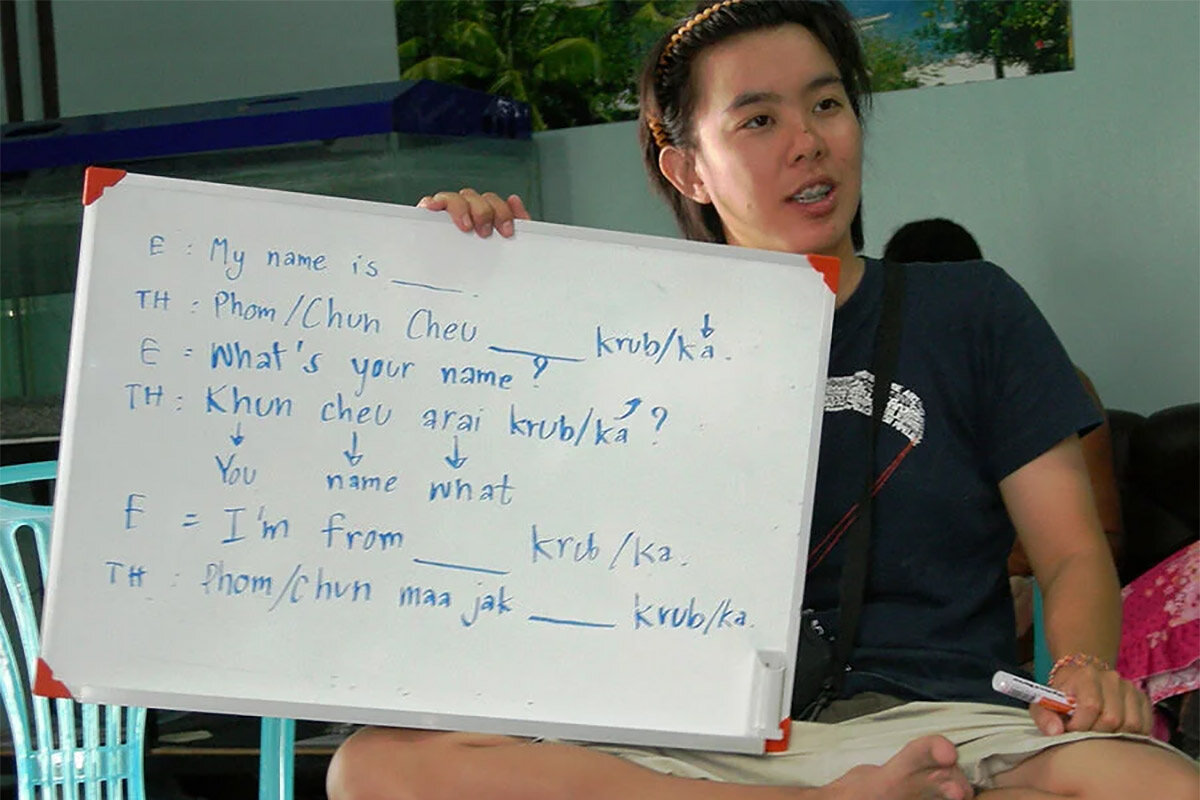 E : My name is ____.
TH : Phom/Chun Cheu ____ krub/ka.
E = What's your name?
TH : Khun cheu arai krub/ka ?
You name what
E = I'm from ____ krub/ka.
TH : Phom/Chun maa jak ____ krub/ka.